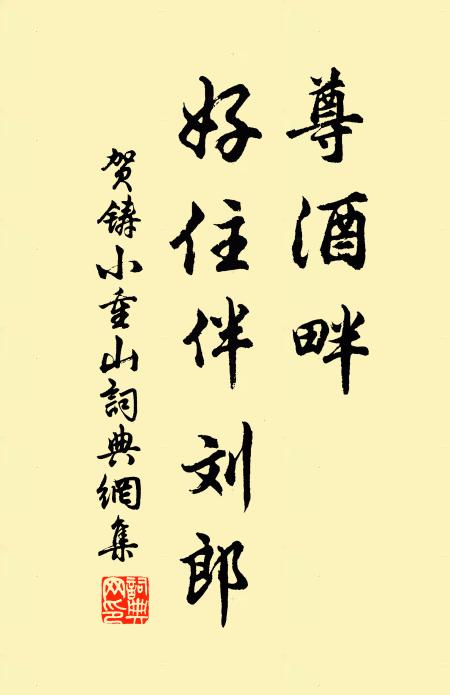 尊酒畔
好住伴刘郎
贺铸小重山詞典網集
詞典网印